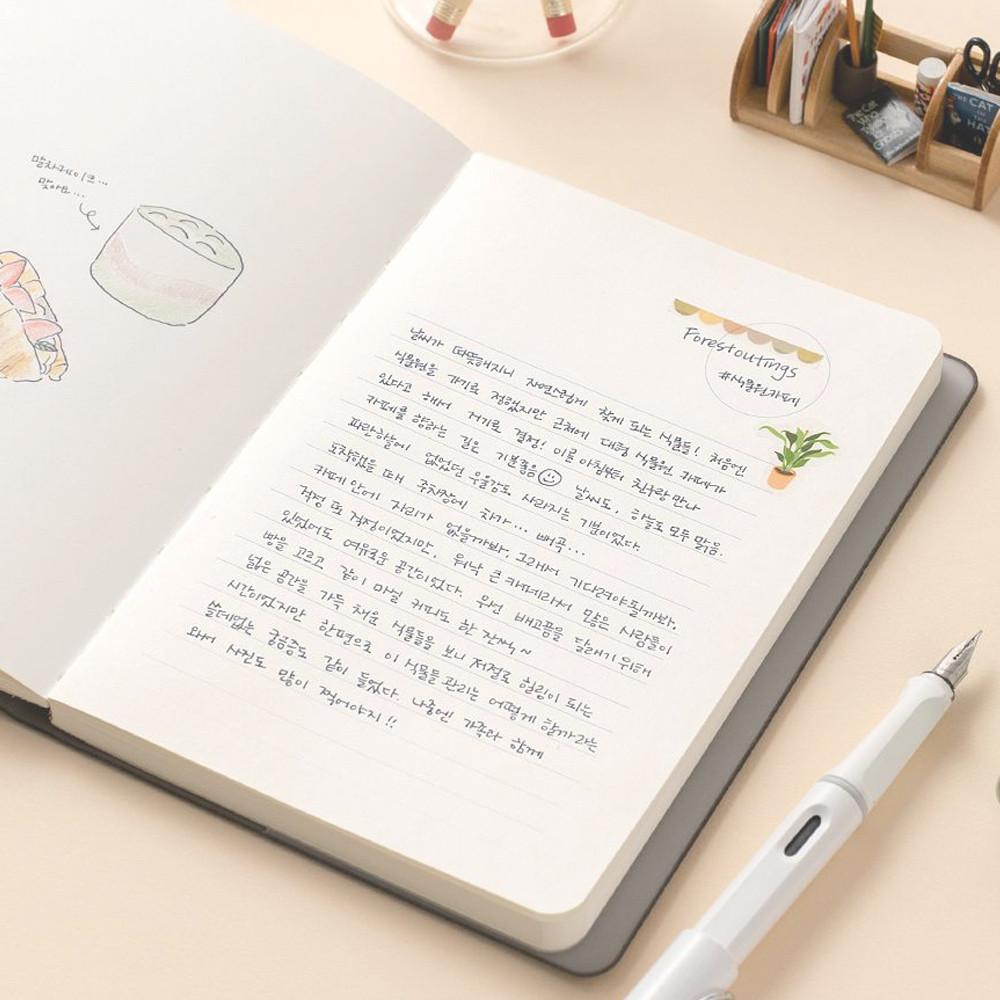 말차케이크...
맞아요...
Forest outings
#식물원카페
날씨가 따뜻해지니 자연스럽게 찾게 되는 식물들! 처음엔
식물원을 가기로 정했지만 근처에 대형 식물원 카페가
있다고 해서 거기로 결정! 이른 아침부터 친구랑 만나
카페를 향하는 길은 기분좋음 날씨도, 하늘도 모두 맑음.
파란하늘에 없었던 우울감도 사라지는 기분이었다.
도착했을 때 주차장에 차가... 빼곡...
카페 안에 자리가 없을까봐, 그래서 기다려야 될까봐,
걱정 또 걱정이었지만, 워낙 큰 카페라서 많은 사람들이
있었어도 여유로운 공간이었다. 우선 배고픔을 달래기 위해
빵을 고르고 같이 마실 커피도 한 잔씩~
넓은 공간을 가득 채운 식물들을 보니 저절로 힐링이 되는
시간이었지만 한편으로 이 식물들 관리는 어떻게 할까라는
쓸데없는 궁금증도 같이 들었다. 나중엔 가족과 함께
와서 사진도 많이 찍어야지!!
The Cat
Who
CAT